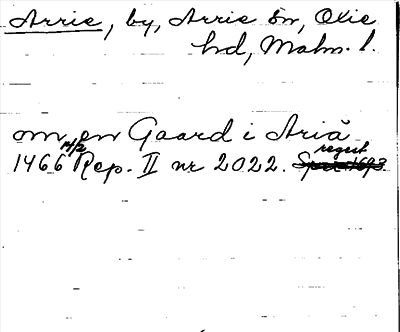 Arrie, by, Arrie sn, Oxie
hd, Malm. l.
om en Gaard i Ariä
1466 14/2 Rep. II nr 2022. regest